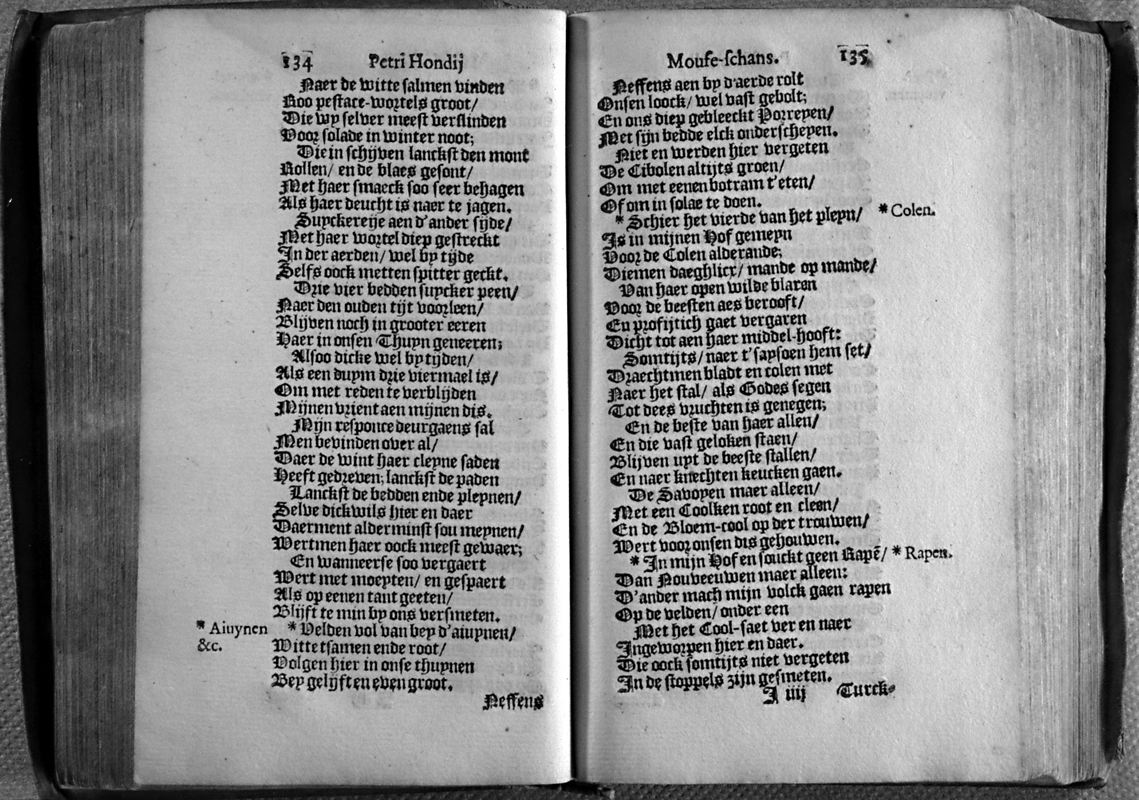 134 Petri Hondij
Naer de witte salmen vinden
Roo pestace-wortels groot/
Die wy selver meest verslinden
Voor solade in winter noot;
Die in schijven lanckst den mont
Rollen/ en de blaes gesont/
Met haer smaeck soo seer behagen
Als haer deucht is naer te jagen.
Suyckereye aen d'ander sijde/
Met haer wortel diep gestreckt
In der aerden/ wel by tijde
Selfs oock metten spitter geckt.
Drie vier bedden suycker peen/
Naer den ouden tijt voorleen/
Blijven noch in grooter eeren
Haer in onsen Thuyn geneeren;
Alsoo dicke wel by tyden/
Als een duym drie viermael is/
Om met reden te verblijden
Mijnen vrient aen mijnen dis.
Mijn responce deurgaens sal
Men bevinden over al/
Daer de wint haer cleyne saden
Heeft gedreven; lanckst de paden
Lanckst de bedden ende pleynen/
Selve dickwils hier en daer
Daerment alderminst sou meynen/
Wertmen haer oock meest gewaer;
En wanneerse soo vergaert
Wert met moeyten/ en gespaert
Als op eenen tant geeten/
Blijft te min by ons versmeten.
* Aiuynen
&c.
* Velden vol van bey d'aiuynen/
Witte tsamen ende root/
Volgen hier in onse thuynen
Bey gelijft en even groot.
Neffens
Mouse-schans. 135
Neffens aen by d'aerde rolt
Onsen loock/ wel vast gebolt;
En ons diep gebleeckt Porreyen/
Met sijn bedde elck onderscheyen.
Niet en werden hier vergeten
De Cibolen altijts groen/
Om met eenen botram t'eten/
Of om in solae te doen.
* Schier het vierde van het pleyn/
* Colen.
Is in mijnen Hof gemeyn
Voor de Colen alderande;
Diemen daeghlicx/ mande op mande/
Van haer open wilde blaren
Voor de beesten aes berooft/
En profijtich gaet vergaren
Dicht tot aen haer middel-hooft:
Somtijts/ naer t'saysoen hem set/
Draechtmen bladt en colen met
Naer het stal/ als Godes segen
Tot dees vruchten is genegen;
En de beste van haer allen/
En die vast geloken staen/
Blijven uyt de beeste stallen/
En naer knechten keucken gaen.
De Savoyen maer alleen/
Met een Coolken root en cleen/
En de Bloem-cool op der trouwen/
Wert voor onsen dis gehouwen.
* In mijn Hof en souckt geen Rapē/
* Rapen.
Dan Nouveeuwen maer alleen:
D'ander mach mijn volck gaen rapen
Op de velden/ onder een
Met het Cool-saet ver en naer
Ingeworpen hier en daer.
Die oock somtijts niet vergeten
In de stoppels zijn gesmeten.
I iiij Turck-